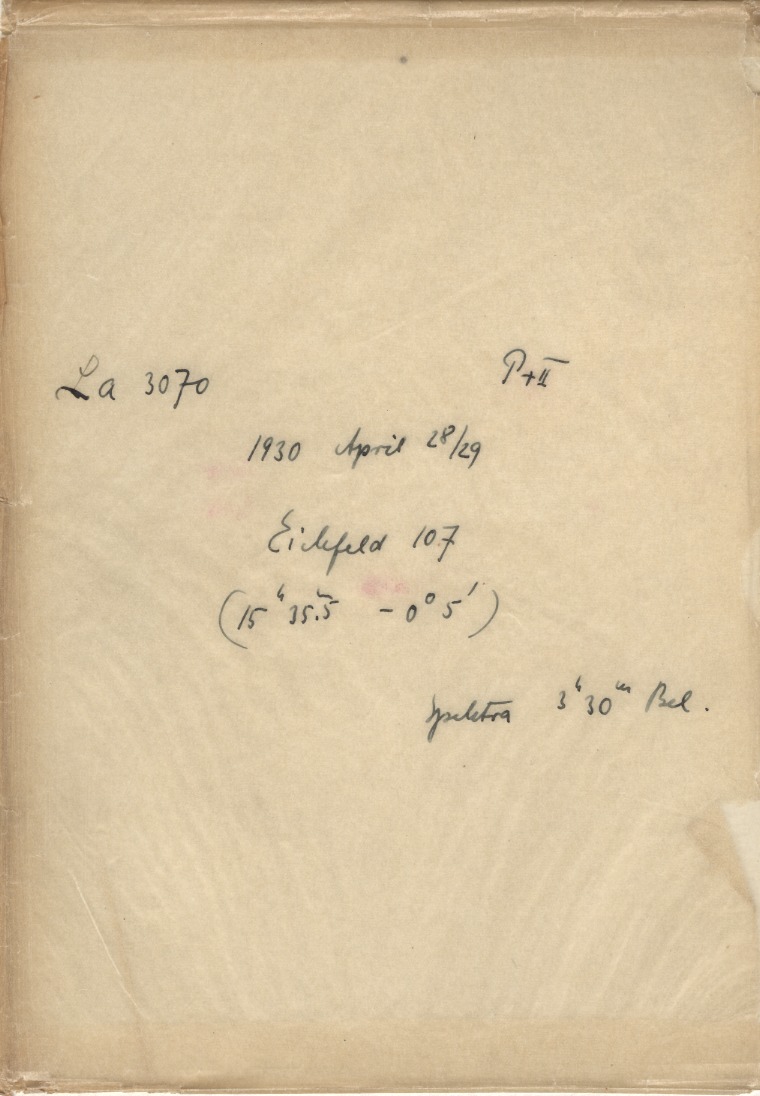 La 3070 P+II
1930 April 28/29
Eichfeld 107
(15ʰ 35ᵐ.5 - 0° 5')
Spektra 3ʰ 30ᵐ Bel.